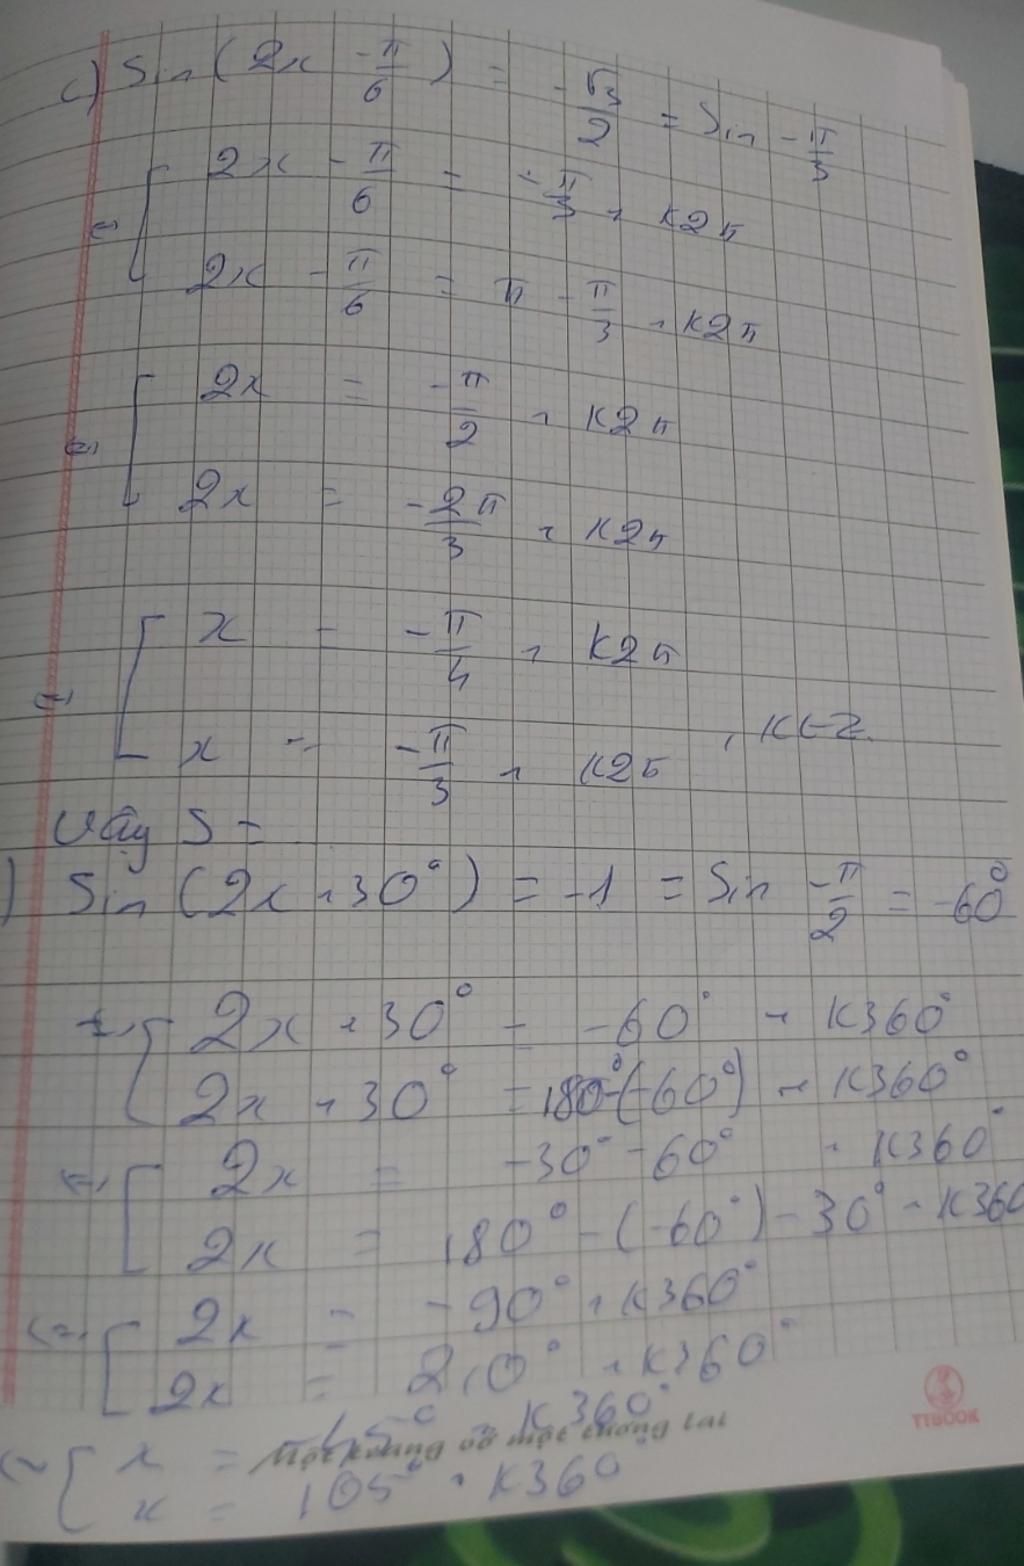 c) Sin(2x - π/6) = -√3/2 = Sin -π/3
⇔ [ 2x - π/6 = -π/3 + k2π
2x - π/6 = π - π/3 + k2π
⇔ [ 2x = -π/2 + k2π
2x = -2π/3 + k2π
⇔ [ x = -π/4 + k2π
x = -π/3 + k2π , k∈Z.
Vậy S =
) Sin(2x+30°) = -1 = Sin -π/2 = -60°
⇔ [ 2x + 30° = -60° + k360°
2x + 30° = 180° - (-60°) + k360°
⇔ [ 2x = -30° - 60° + k360°
2x = 180° - (-60°) - 30° + k360
⇔ [ 2x = -90° + k360°
2x = 210° + k360°
⇔ [ x = -45° + k360°
Một trang vở một tương lai
x = 105° + k360°
TTBOOK